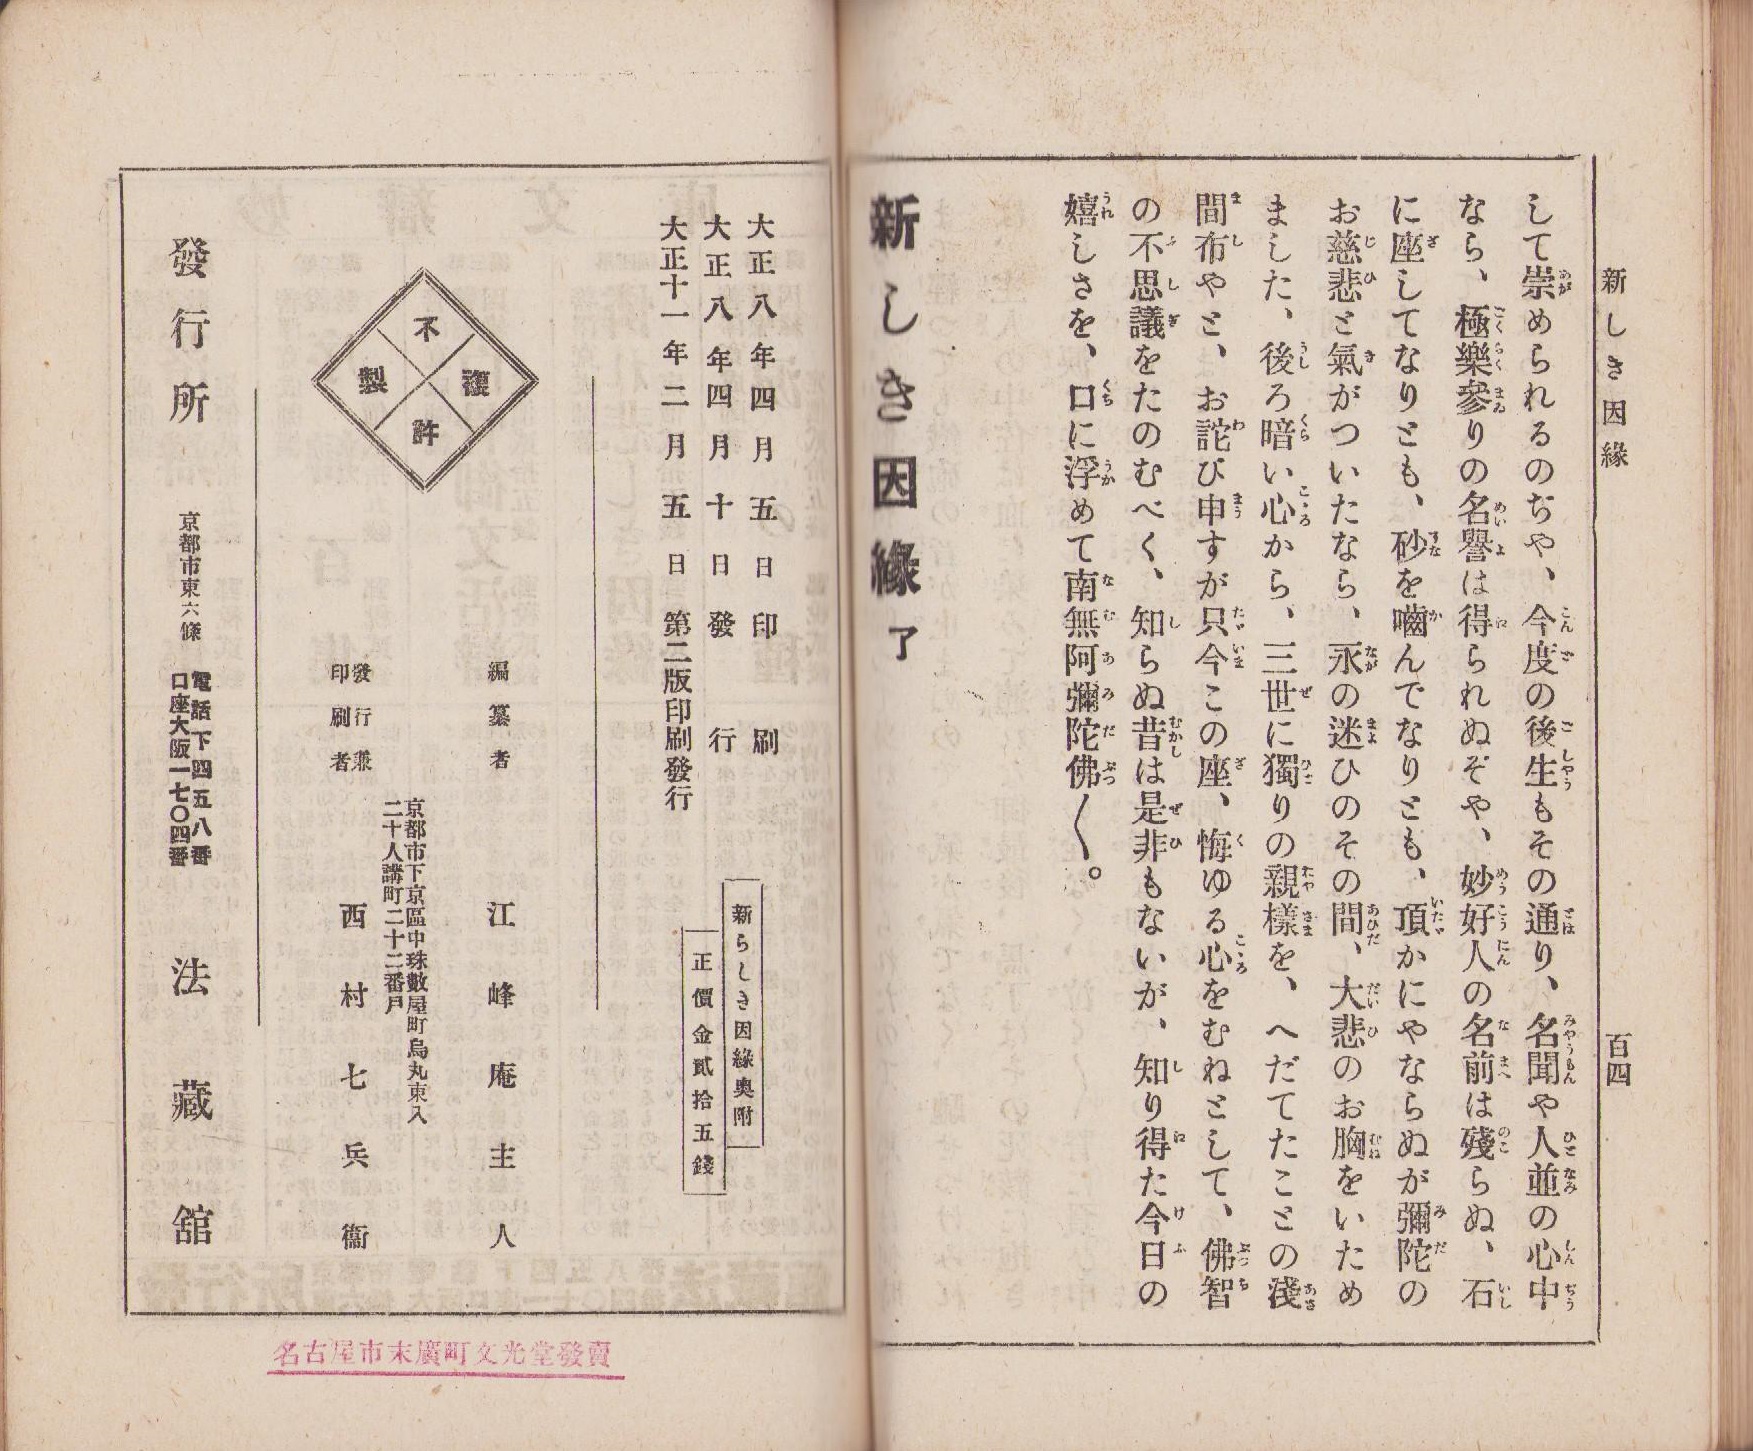 新しき因緣
百四
して崇められるのぢや、今度の後生もその通り、名聞や人並の心中
なら、極樂參りの名譽は得られぬぞや、妙好人の名前は殘らぬ、石
に座してなりとも、砂を嚙んでなりとも、頂かにやならぬが彌陀の
お慈悲と氣がついたなら、永の迷ひのその間、大悲のお胸をいため
ました、後ろ暗い心から、三世に獨りの親樣を、へだてたことの淺
間布やと、お詫び申すが只今この座、悔ゆる心をむねとして、佛智
の不思議をたのむべく、知らぬ昔は是非もないが、知り得た今日の
嬉しさを、口に浮めて南無阿彌陀佛〱。
新しき因緣 了
大正八年四月五日印刷
大正八年四月十日發行
大正十一年二月五日第二版印刷發行
新らしき因緣奧附
正價金貳拾五錢
不
複
製
許
編纂者 江峰庵主人
京都市下京區中珠數屋町烏丸東入
二十人講町二十二番戶
發行兼
印刷者 西村七兵衞
發行所 京都市東六條 電話下四五八番
口座大阪一七〇四番 法藏舘
名古屋市末廣町文光堂發賣